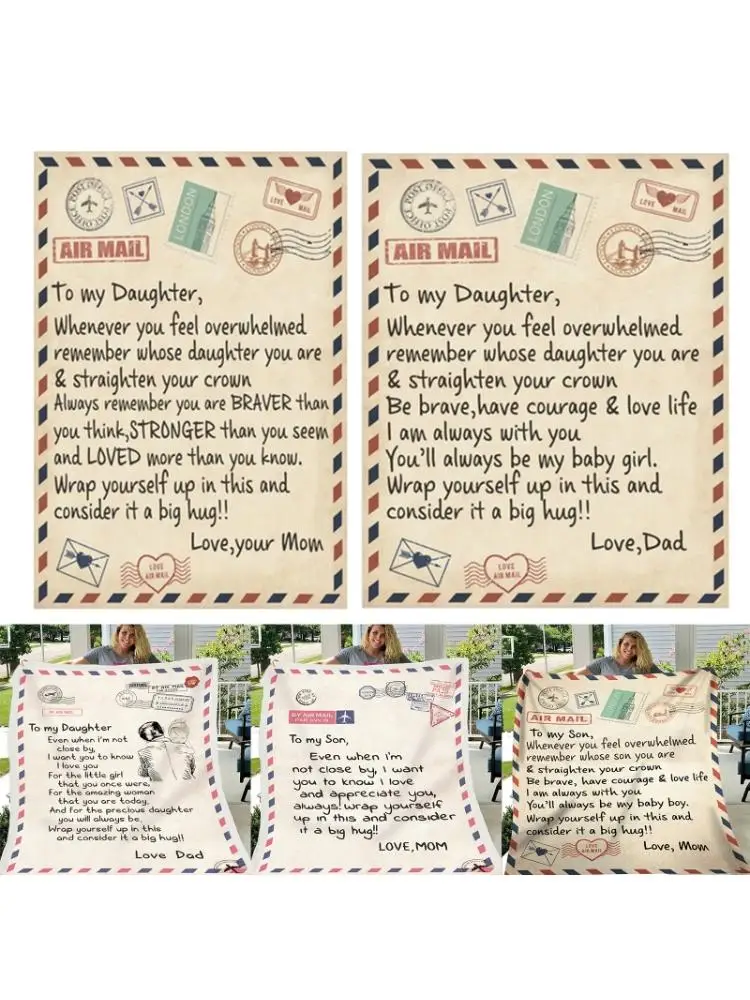 POST OFFICE
POST OFFICE
LONDON
LOVE MAIL
AIR MAIL
To my Daughter,
Whenever you feel overwhelmed
remember whose daughter you are
& straighten your crown
Always remember you are BRAVER than
you think,STRONGER than you seem
and LOVED more than you know.
Wrap yourself up in this and
consider it a big hug!!
Love,your Mom
LOVE
AIR MAIL
POST OFFICE
POST OFFICE
LONDON
LOVE MAIL
AIR MAIL
To my Daughter,
Whenever you feel overwhelmed
remember whose daughter you are
& straighten your crown
Be brave,have courage & love life
I am always with you
You'll always be my baby girl.
Wrap yourself up in this and
consider it a big hug!!
Love,Dad
LOVE
AIR MAIL
BY AIR MAIL
To my Daughter
Even when i'm not
close by,
I want you to know
I love you
For the little girl
that you once were,
For the amazing woman
that you are today,
And for the precious daughter
you will always be,
Wrap yourself up in this
and consider it a big hug!!
Love Dad
BY AIR MAIL
PAR AVION
To my Son,
Even when i'm
not close by, I want
you to know I love
and appreciate you,
always! wrap yourself
up in this and consider
it a big hug!!
LOVE,MOM
LONDON
AIR MAIL
To my Son,
Whenever you feel overwhelmed
remember whose son you are
& straighten your crown
Be brave, have courage & love life
I am always with you
You'll always be my baby boy.
Wrap yourself up in this and
consider it a big hug!!
Love, Mom
LOVE
AIR MAIL